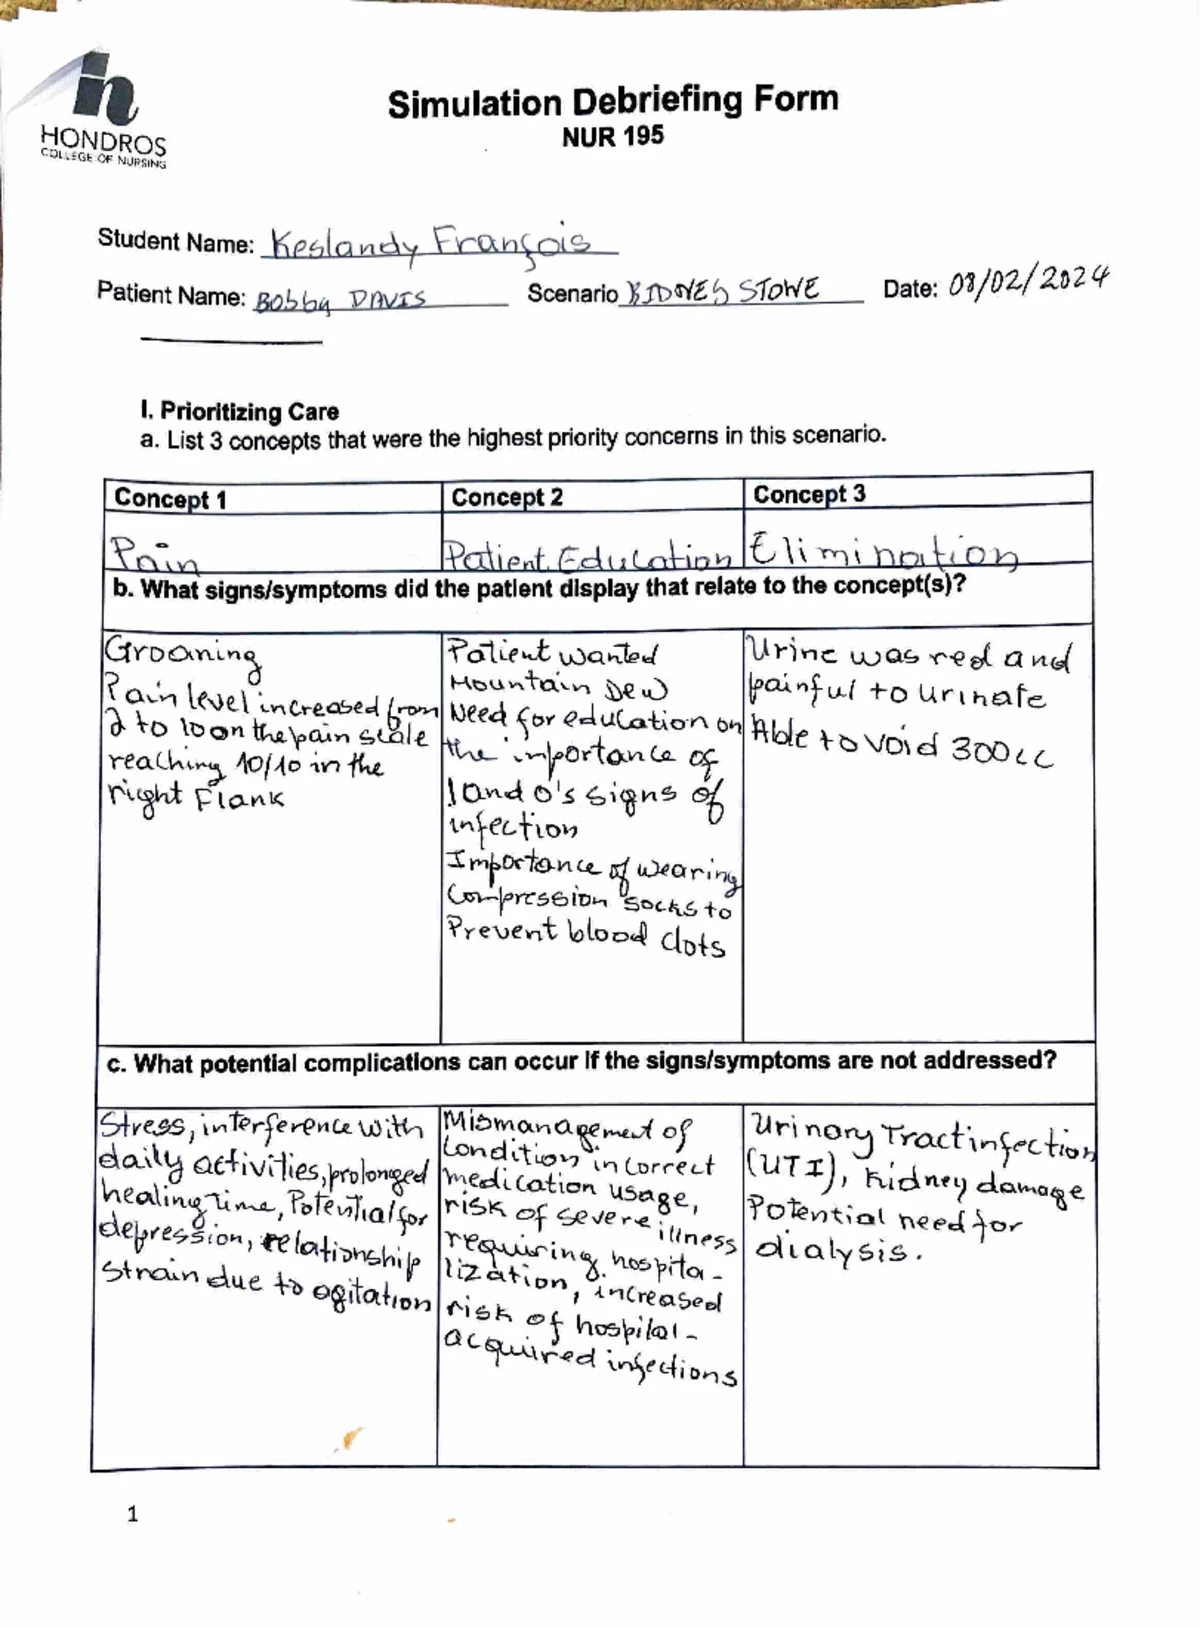 HONDROS
COLLEGE OF NURSING
Simulation Debriefing Form
NUR 195
Student Name: Keslandy François
Patient Name: Bobby DAVIS Scenario KIDNEY STONE Date: 08/02/2024
I. Prioritizing Care
a. List 3 concepts that were the highest priority concerns in this scenario.
Concept 1 Concept 2 Concept 3
Pain Patient Education Elimination
b. What signs/symptoms did the patient display that relate to the concept(s)?
Groaning
Pain level increased from
2 to 10 on the pain scale
reaching 10/10 in the
right Flank
Patient wanted
Mountain Dew
Need for education on
the importance of
I and O's signs of
infection
Importance of wearing
Compression socks to
Prevent blood clots
Urine was red and
painful to urinate
Able to void 300cc
c. What potential complications can occur if the signs/symptoms are not addressed?
Stress, interference with
daily activities, prolonged
healing time, Potential for
depression, relationship
Strain due to agitation
Mismanagement of
Condition incorrect
medication usage,
risk of severe illness
requiring hospita-
lization, increased
risk of hospital-
acquired infections
Urinary Tract infection
(UTI), Kidney damage
Potential need for
dialysis.
1